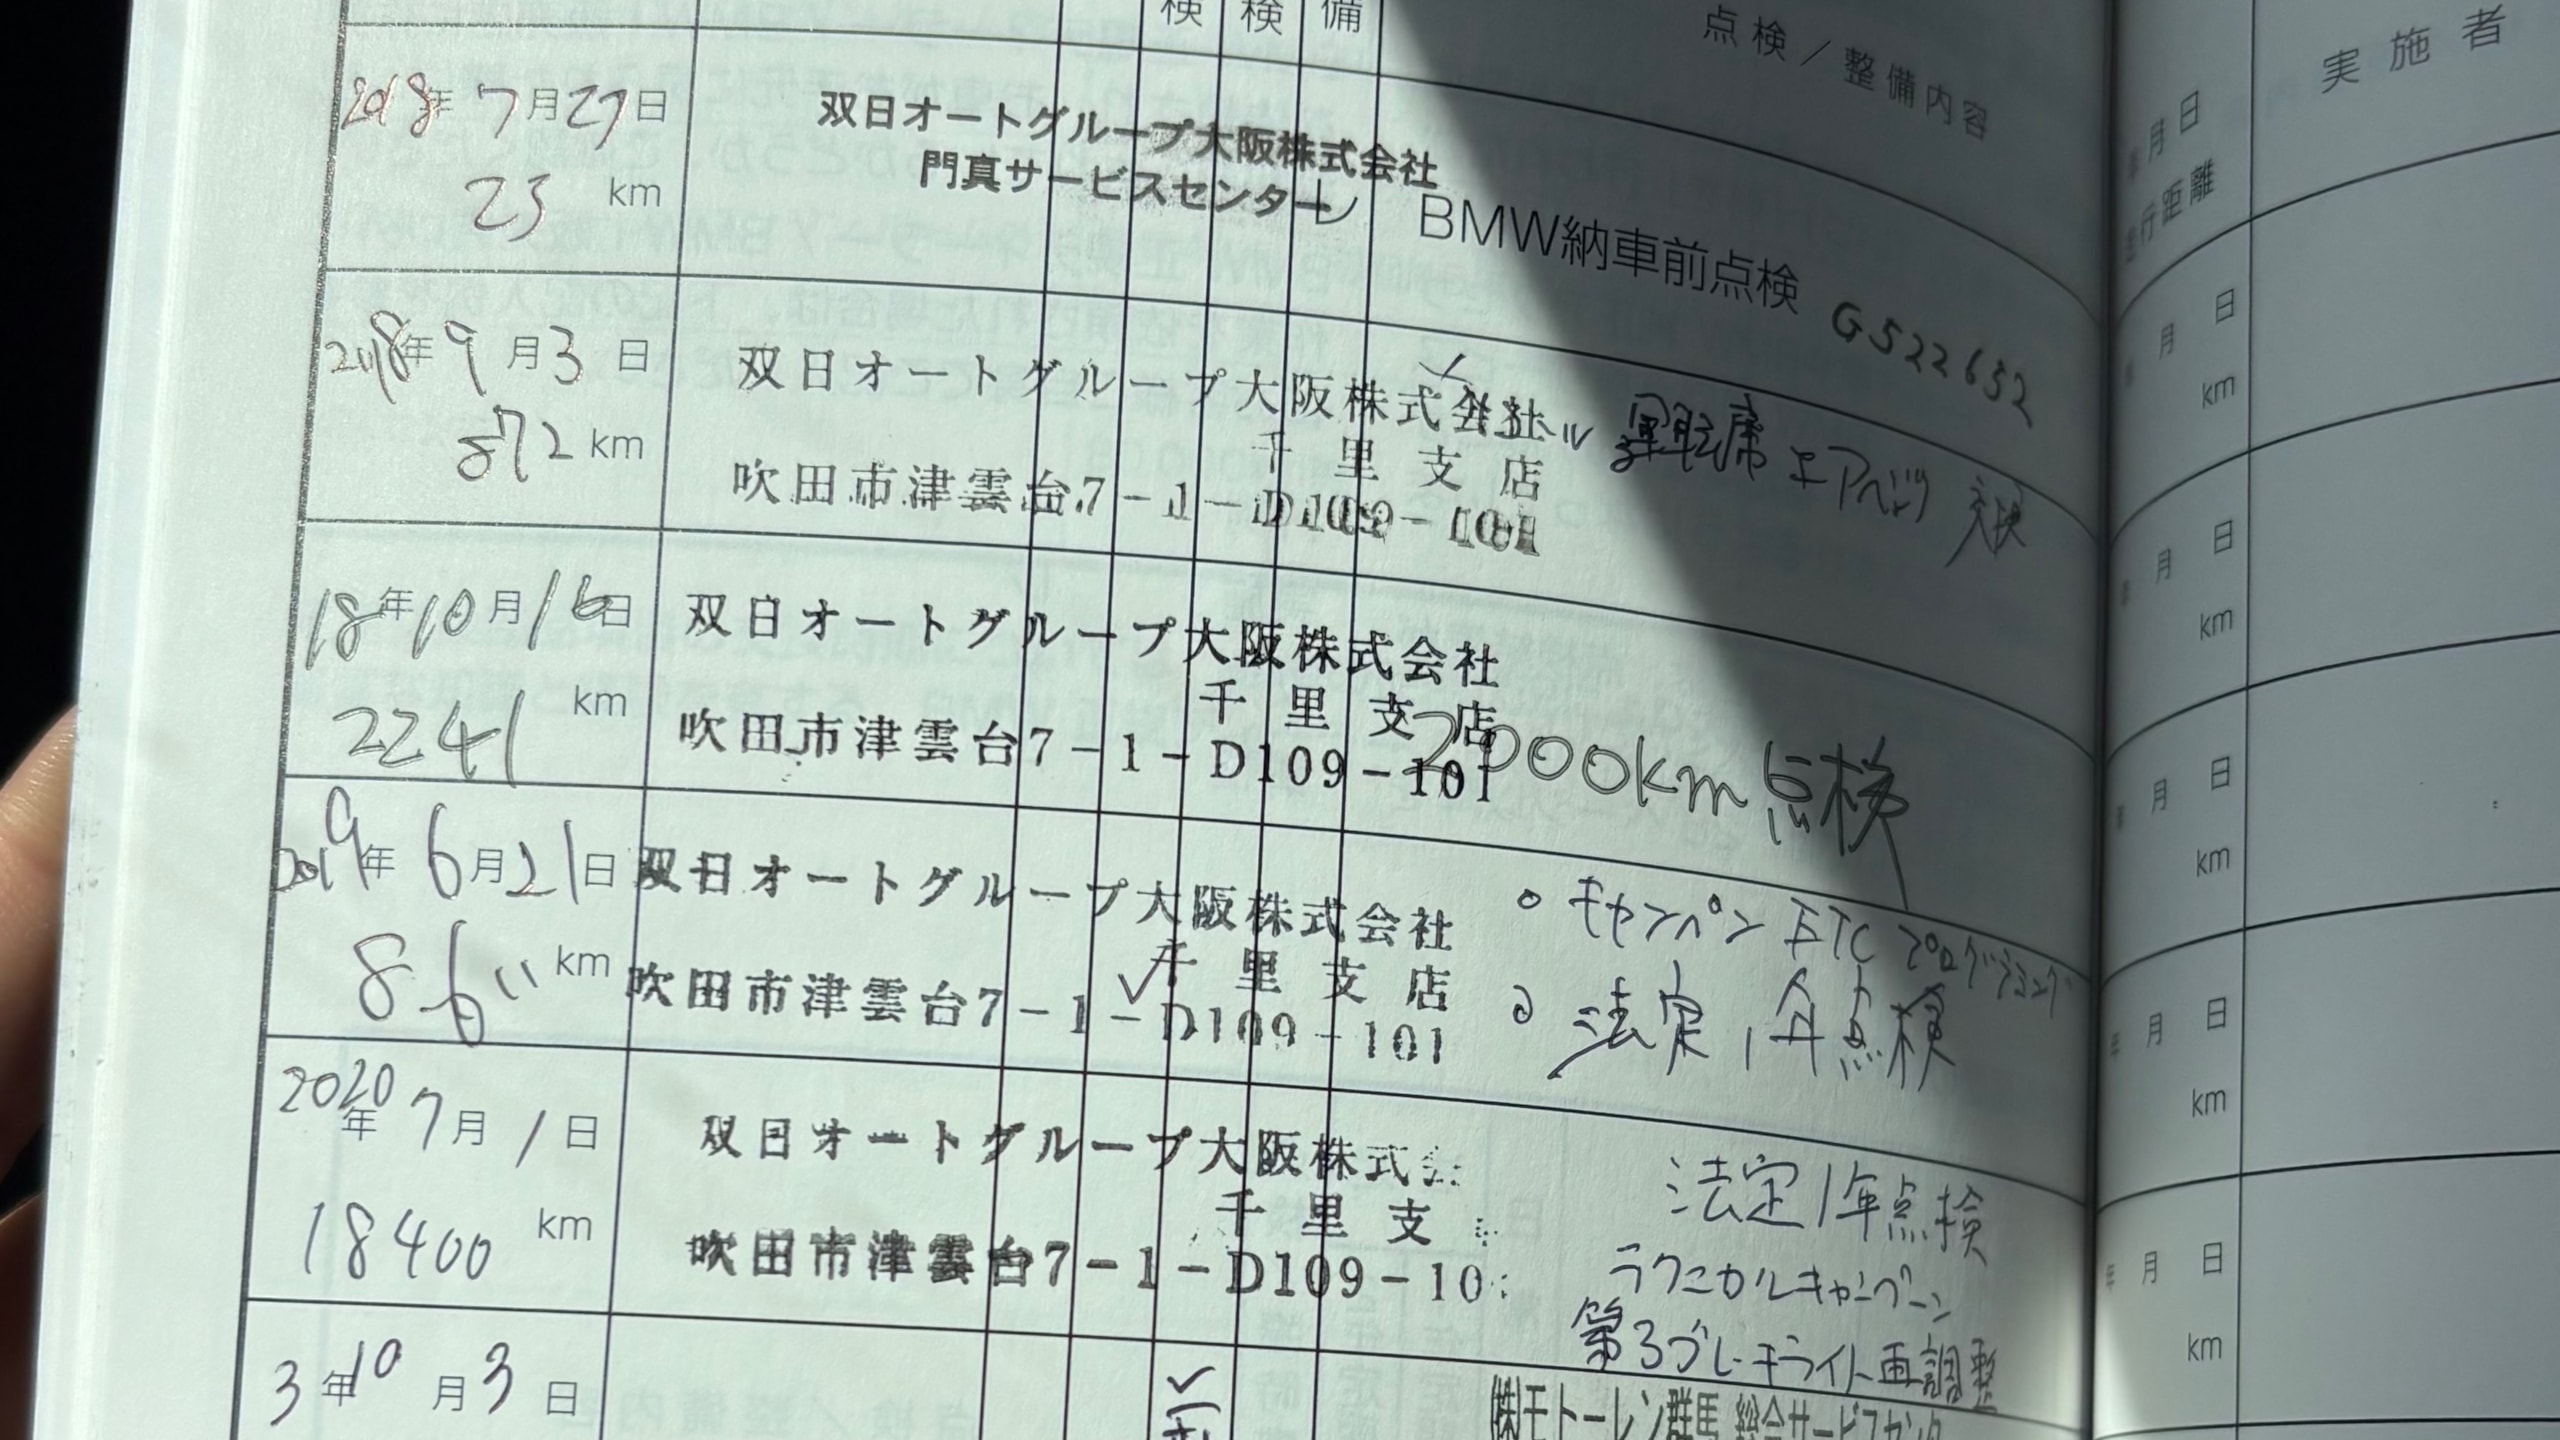 検 検 備
点検／整備内容
2018年 7月27日
23 km
双日オートグループ大阪株式会社
門真サービスセンター
レ
BMW納車前点検 G522652
2018年 9月3日
872 km
双日オートグループ大阪株式会社
千里支店
吹田市津雲台7-1-D109-101
運転席エアバッグ 交換
18年10月16日
2241 km
双日オートグループ大阪株式会社
千里支店
吹田市津雲台7-1-D109-101
2000km点検
2019年 6月21日
km
双日オートグループ大阪株式会社
千里支店
吹田市津雲台7-1-D109-101
キャンペン ETC プログラミング
法定1年点検
2020年 7月1日
18400 km
双日オートグループ大阪株式
千里支
吹田市津雲台7-1-D109-10
法定1年点検
テクニカルキャンペーン
第3ブレーキライト再調整
3年10月3日
㈱モトーレン群馬 総合サービスセンタ
実施者
年月日
走行距離
年 月 日
km
年 月 日
km
年 月 日
km
年 月 日
km
年 月 日
km